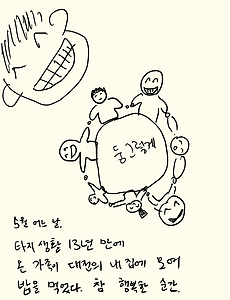 둥그렇게
5월 어느 날.
타지 생활 13년 만에
온 가족이 대전의 내 집에 모여
밥을 먹었다. 참 행복할 순간